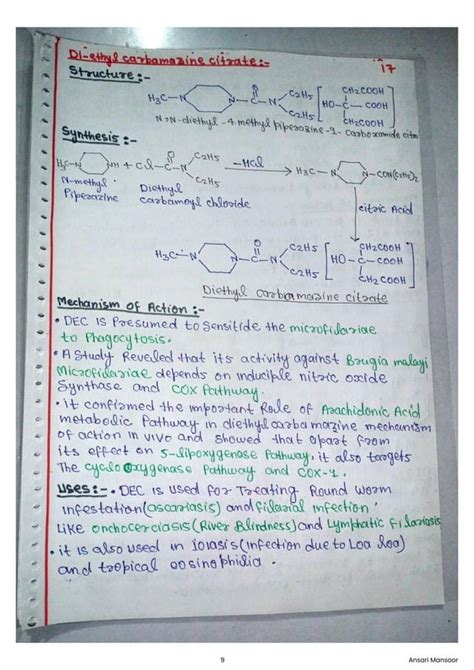 Di-ethyl carbamazine citrate:-
17
Structure:-
H3C-N N-C-N C2H5 C2H5 O
CH2COOH
HO-C-COOH
CH2COOH
N,N-diethyl-4-methyl piperazine-1-carboxamide cit
Synthesis:-
H3C-N NH + Cl-C-N C2H5 C2H5 O -HCl H3C-N N-CON(C2H5)2
N-methyl Piperazine
Diethyl carbamoyl chloride
citric Acid
H3C-N N-C-N C2H5 C2H5 O
CH2COOH
HO-C-COOH
CH2COOH
Diethyl carbamazine citrate
Mechanism of Action:-
• DEC is Presumed to Sensitide the microfilariae
to Phagocytosis.
• A Study Revealed that its activity against Brugia malayi
Microfilariae depends on inducible nitric oxide
Synthase and COX Pathway.
• It confirmed the important Role of Arachidonic Acid
metabolic Pathway in diethylcarbamazine mechanism
of action in vivo and showed that apart from
its effect on 5-lipoxygenase Pathway, it also targets
The cyclooxygenase Pathway and COX-1.
Uses:- • DEC is used for Treating Round worm
Infestation (ascariasis) and filarial infection
Like onchocerciasis (River Blindness) and Lymphatic filariasis
• it is also used in loiasis (infection due to Loa loa)
and tropical eosinophilia.
9
Ansari Mansoor